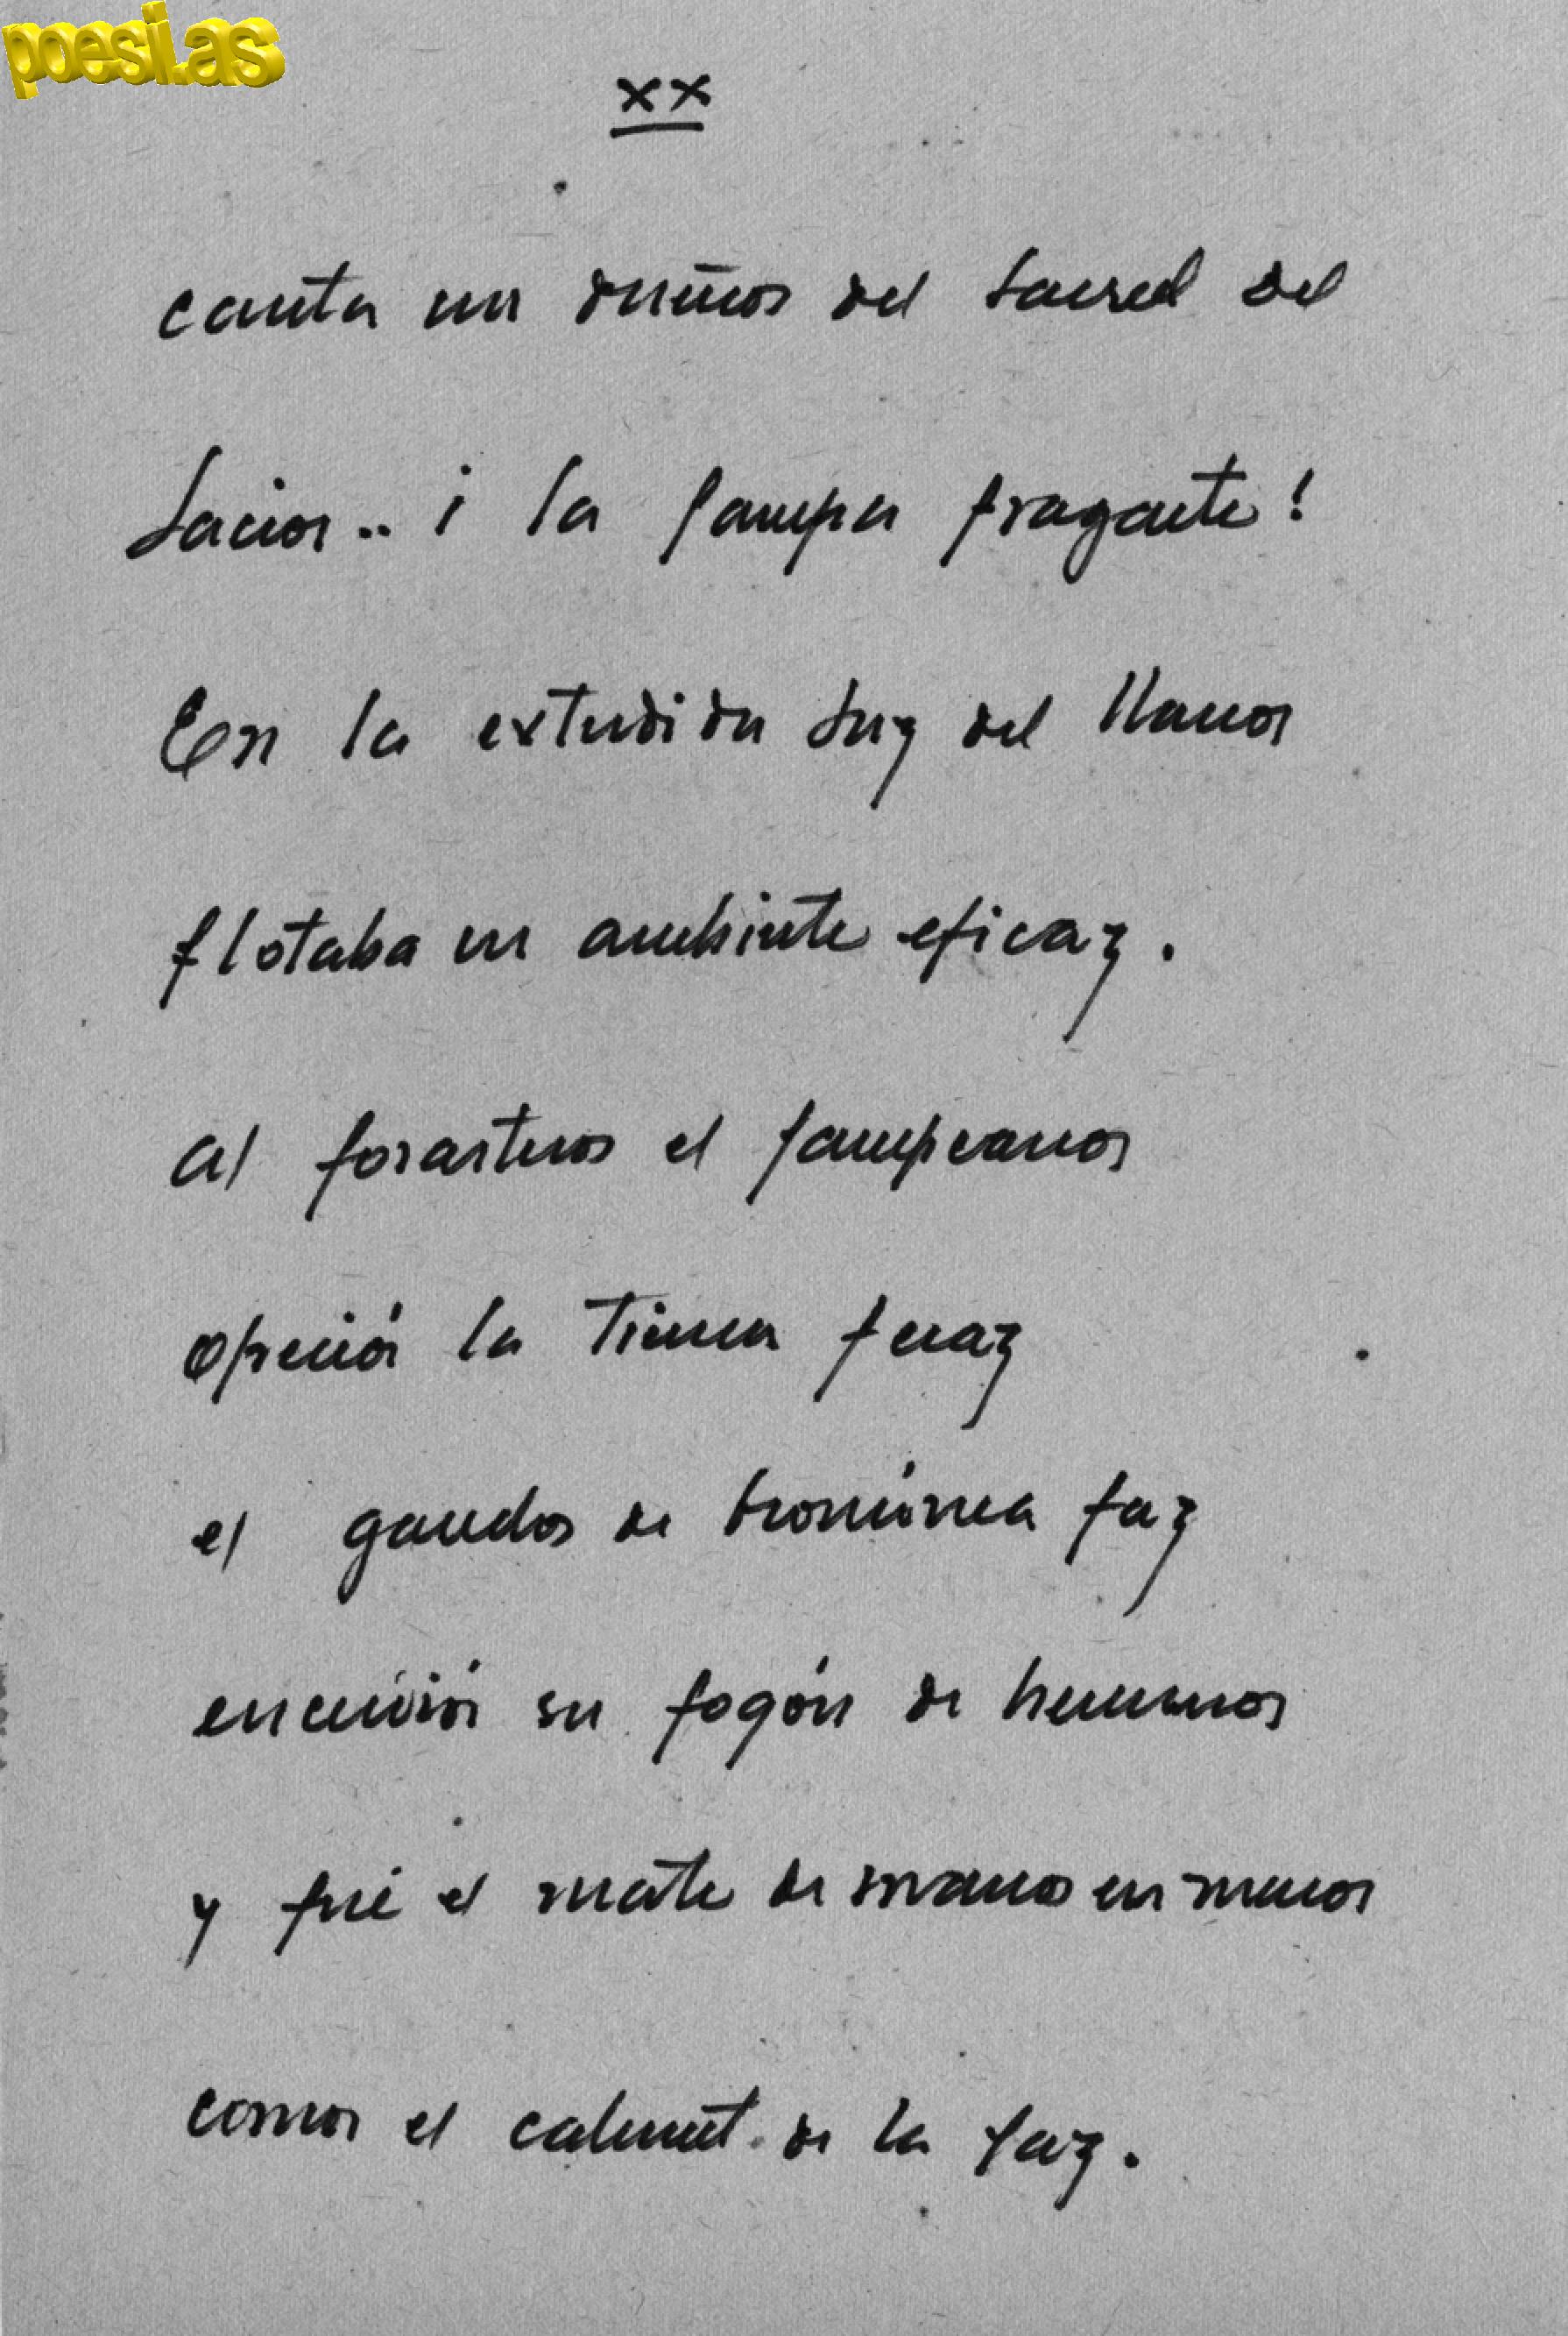 poesi.as
XX
canta un dueño del laurel del
Lacio.. ¡la pampa fragante!
En la extendida luz del llano
flotaba un ambiente eficaz.
Al forastero el pampeano
ofreció la tierra feraz
el gaucho de broncínea faz
encendió su fogón de hermano
y fué el mate de mano en mano
como el calumet de la paz.